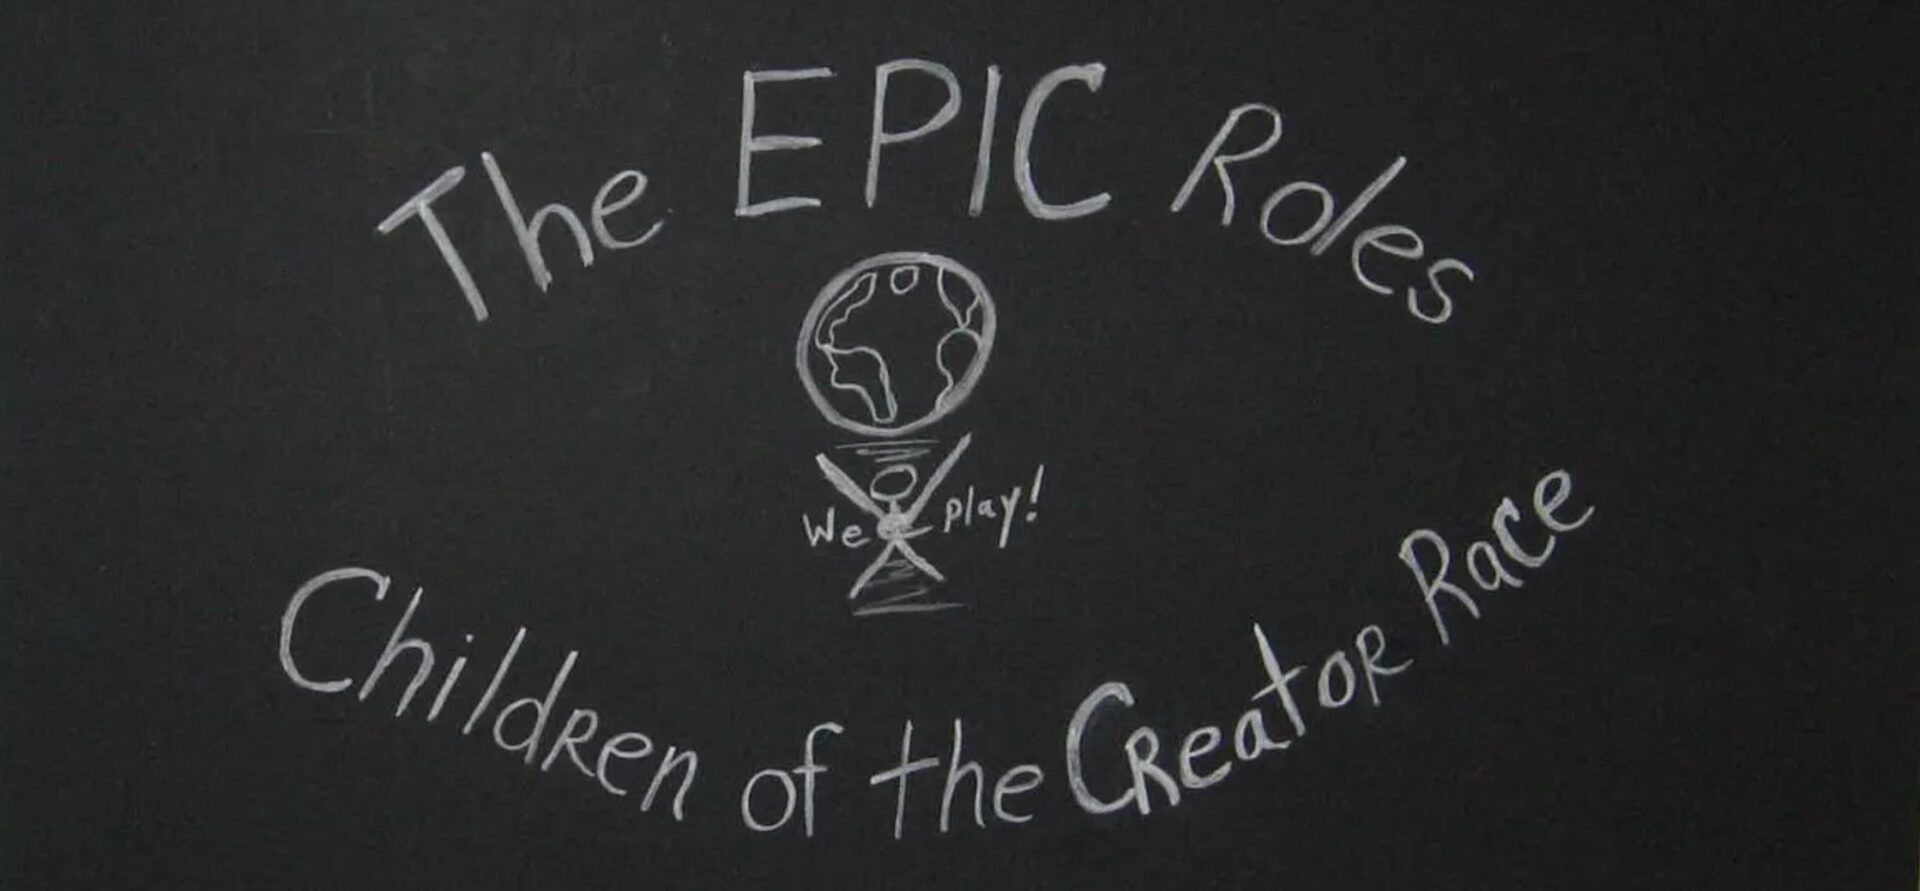 The EPIC Roles
We play!
Children of the Creator Race